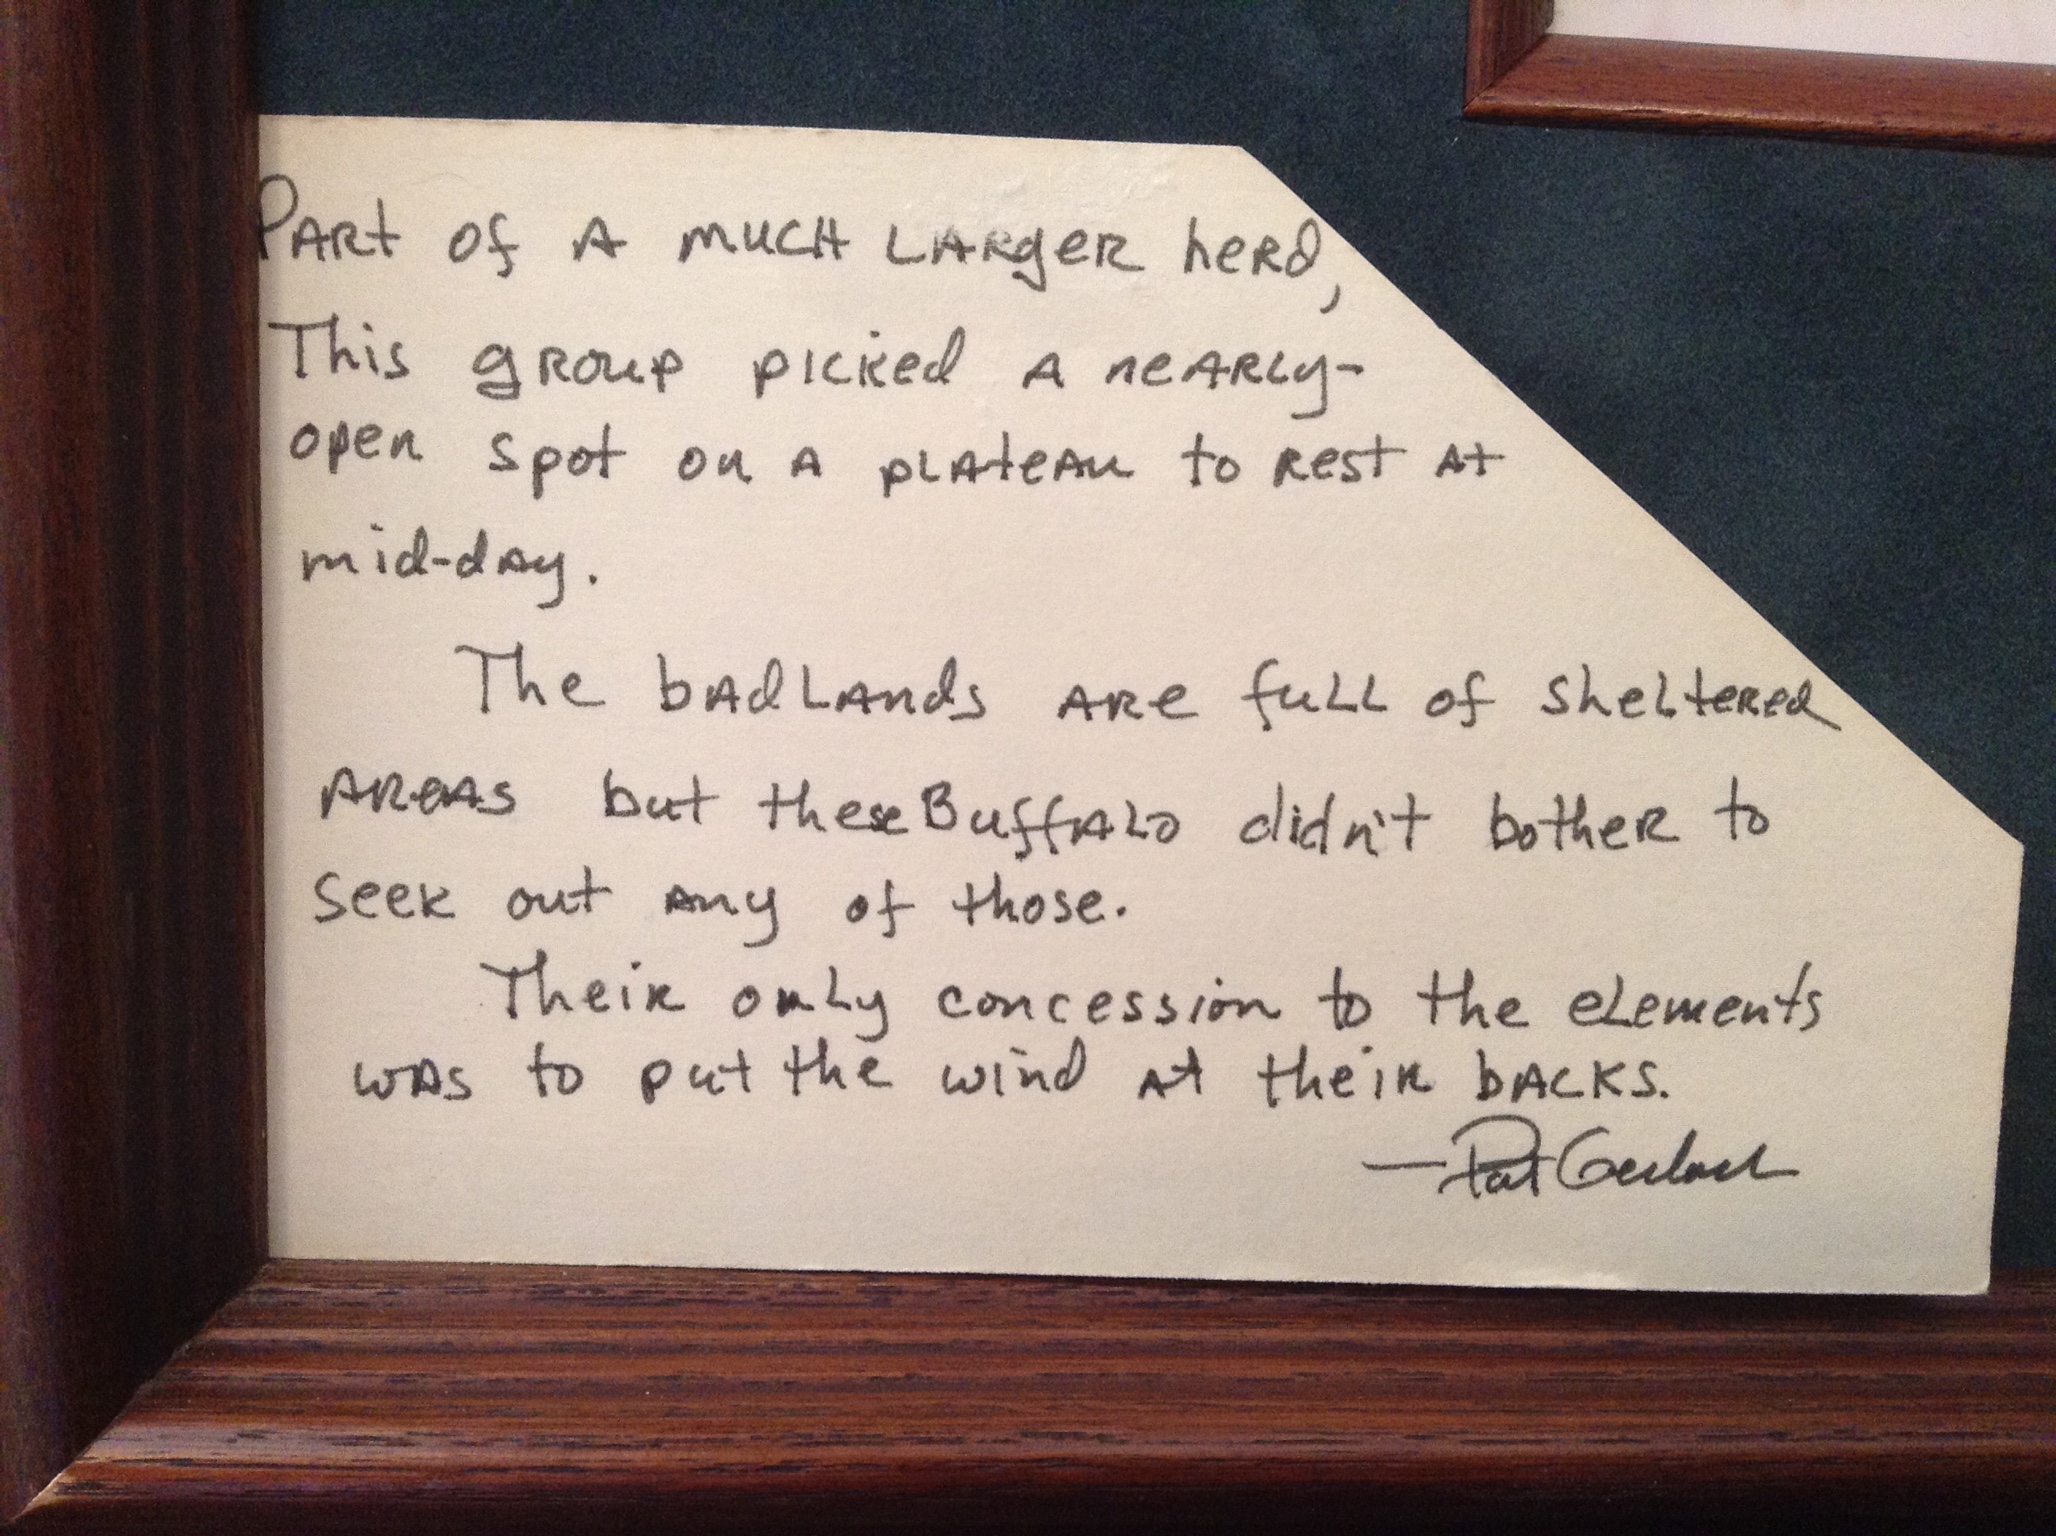 Part of a much larger herd,
This group picked a nearly-
open spot on a plateau to rest at
mid-day.
The badlands are full of sheltered
areas but these Buffalo didn't bother to
seek out any of those.
Their only concession to the elements
was to put the wind at their backs.
— Pat Gerlach